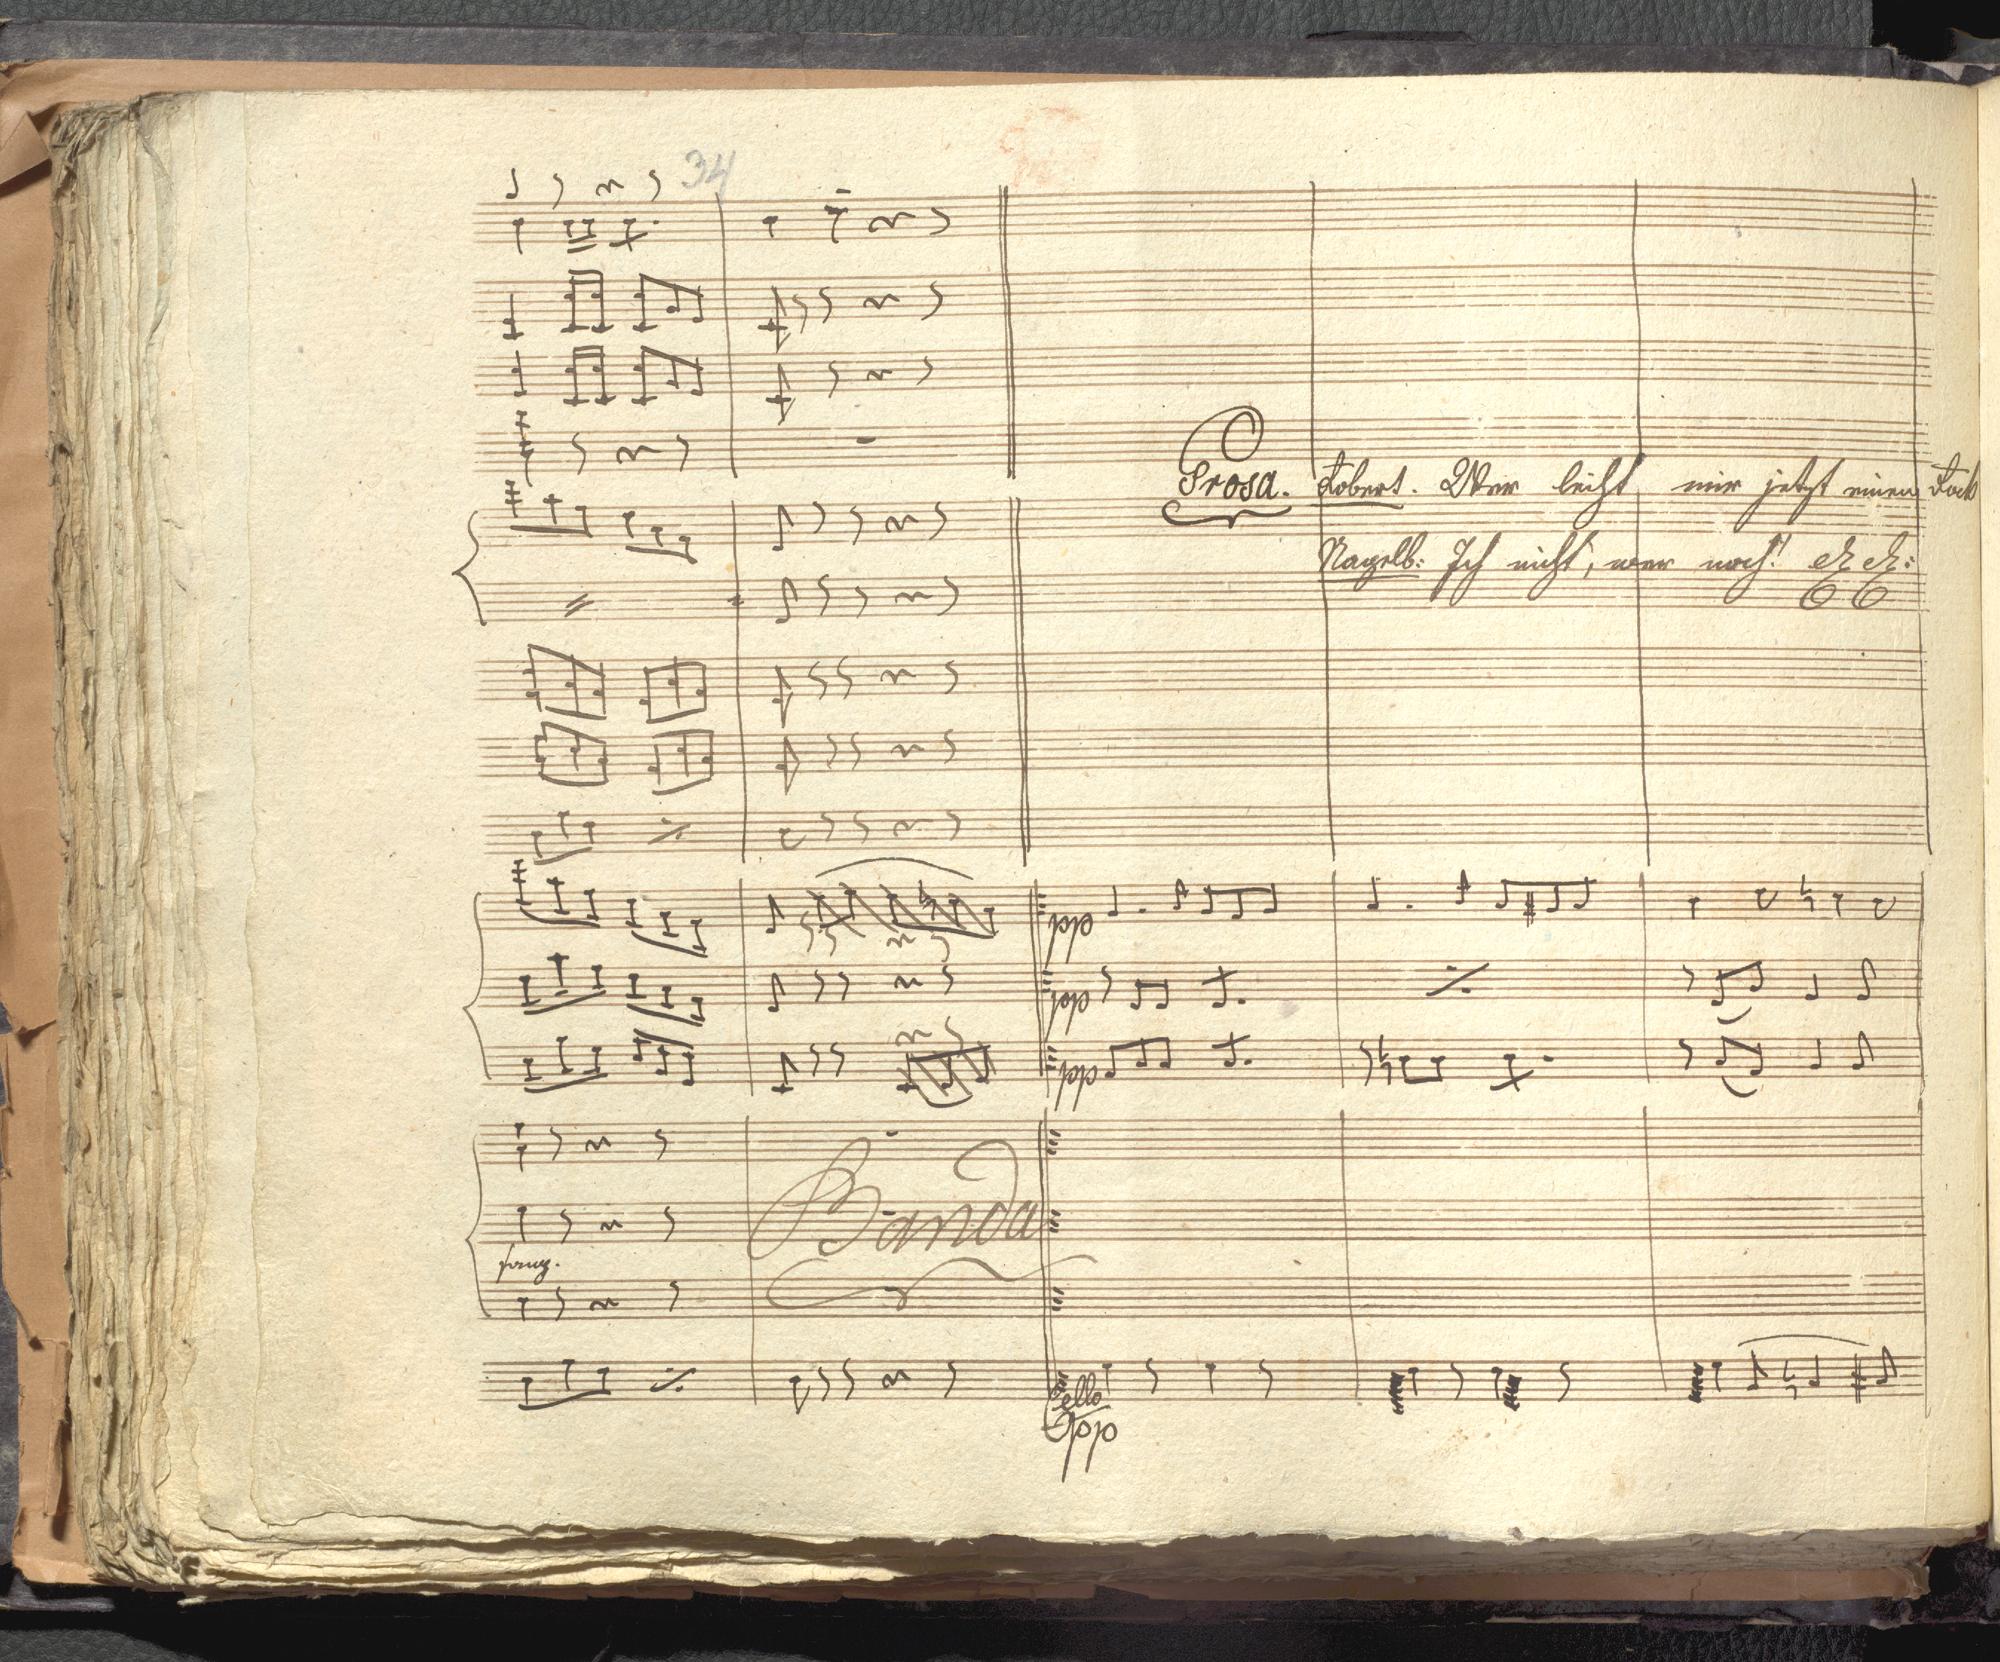 34
Prosa. Robert. Wer leiht mir jetzt einen
Nagelb: Ich nicht, wer noch! etz etz:
pp
pp
pp
Banda
Cello
pp